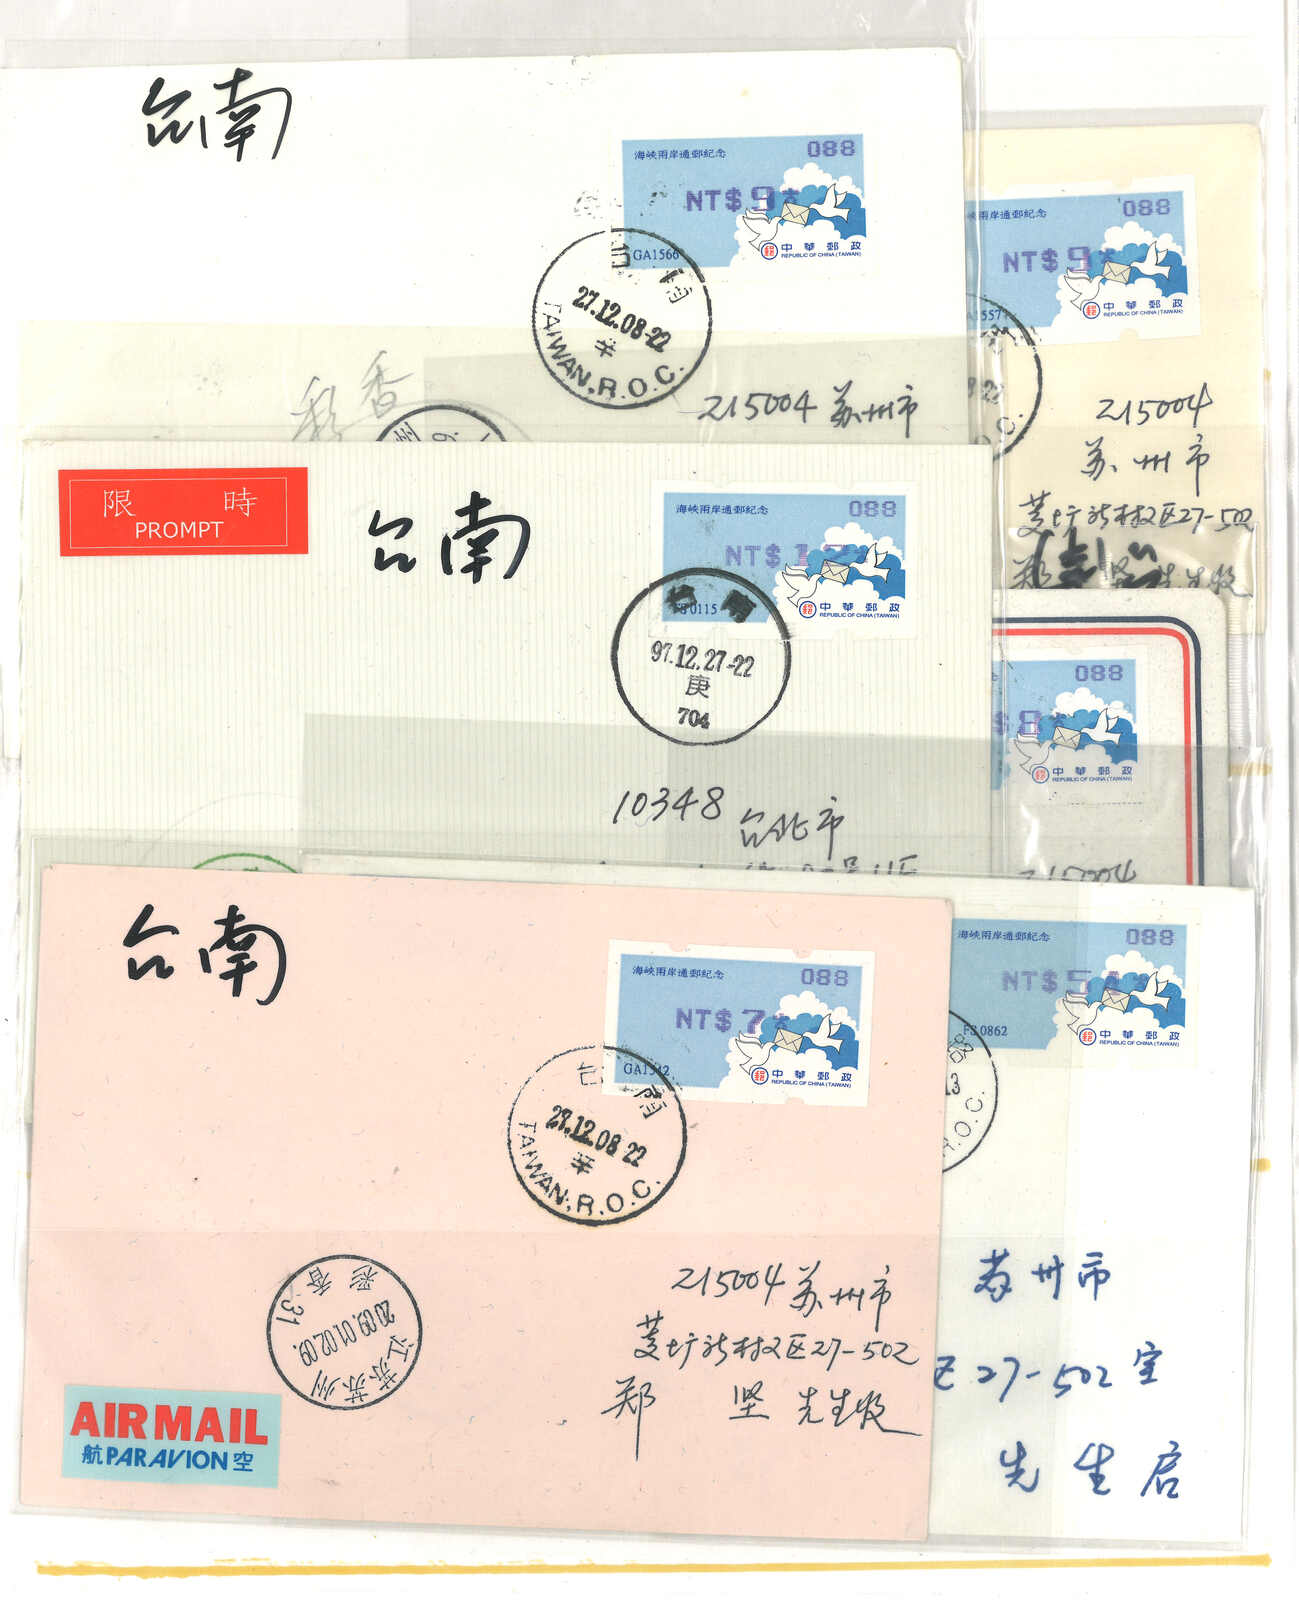 台南
海峽兩岸通郵紀念
088
NT$9
GA1566
中華郵政
REPUBLIC OF CHINA (TAIWAN)
台南
27.12.08-22
辛
TAIWAN, R.O.C.
彩香
215004 苏州市
088
NT$9
中華郵政
REPUBLIC OF CHINA (TAIWAN)
215004
苏州市
娄圹新村又区27-502
郑 坚先生收
限時
PROMPT
台南
海峽兩岸通郵紀念
088
NT$12
FS0115
中華郵政
REPUBLIC OF CHINA (TAIWAN)
台南
97.12.27-22
庚
704
10348 台北市
088
$8
中華郵政
REPUBLIC OF CHINA (TAIWAN)
215004
台南
海峽兩岸通郵紀念
088
NT$7
GA1542
中華郵政
REPUBLIC OF CHINA (TAIWAN)
台南
27.12.08 22
辛
TAIWAN, R.O.C.
江苏苏州
2009.01.02.09.
彩香 31
215004 苏州市
娄圹新村又区27-502
郑 坚 先生收
AIR MAIL
航 PAR AVION 空
海峽兩岸通郵紀念
088
NT$54
FS0862
中華郵政
REPUBLIC OF CHINA (TAIWAN)
苏州市
区27-502室
先生启